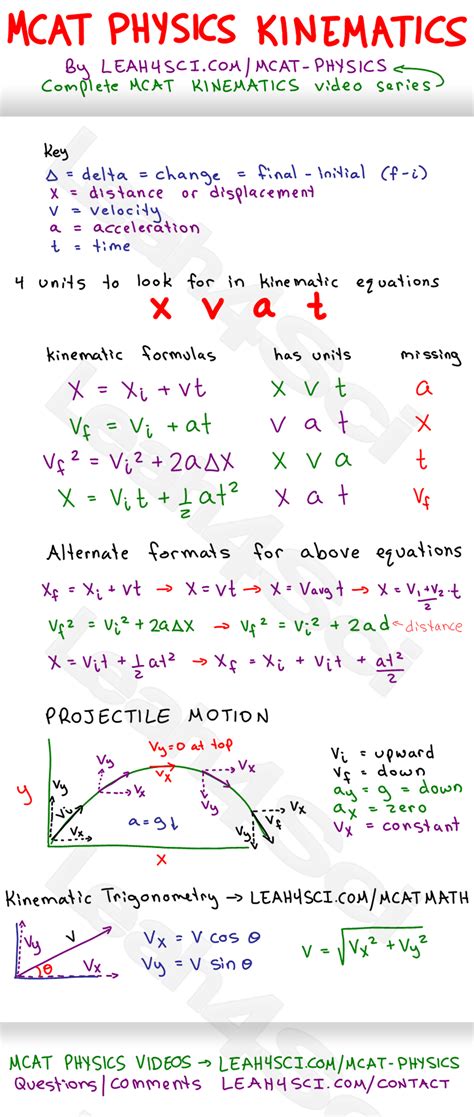 MCAT PHYSICS KINEMATICS
By LEAH4SCI.COM/MCAT-PHYSICS
Complete MCAT KINEMATICS video series
Key
Δ = delta = change = final - Initial (f-i)
x = distance or displacement
v = velocity
a = acceleration
t = time
4 units to look for in kinematic equations
x v a t
kinematic formulas has units missing
X = Xi + vt X v t a
Vf = Vi + at v a t X
Vf² = Vi² + 2aΔX X v a t
X = Vit + 1/2 at² X a t Vf
Alternate formats for above equations
Xf = Xi + vt → X = vt → X = Vavg t → X = V1+V2/2 · t
Vf² = Vi² + 2aΔX → Vf² = Vi² + 2ad ← distance
X = Vit + 1/2 at² → Xf = Xi + Vit + at²/2
PROJECTILE MOTION
Vy=0 at top
Vx
Vy
Vx
Vx
Vy
y
Vy
Vi
Vx
a=g↓
Vx
Vf
Vy
x
Vi = upward
Vf = down
ay = g = down
ax = zero
Vx = constant
Kinematic Trigonometry → LEAH4SCI.COM/MCATMATH
Vy
V
Vx
θ
Vx = V cos θ
Vy = V sin θ
V = √Vx² + Vy²
MCAT PHYSICS VIDEOS → LEAH4SCI.COM/MCAT-PHYSICS
Questions|Comments LEAH4SCI.COM/CONTACT
Leah4Sci
Leah4Sci
Leah4Sci